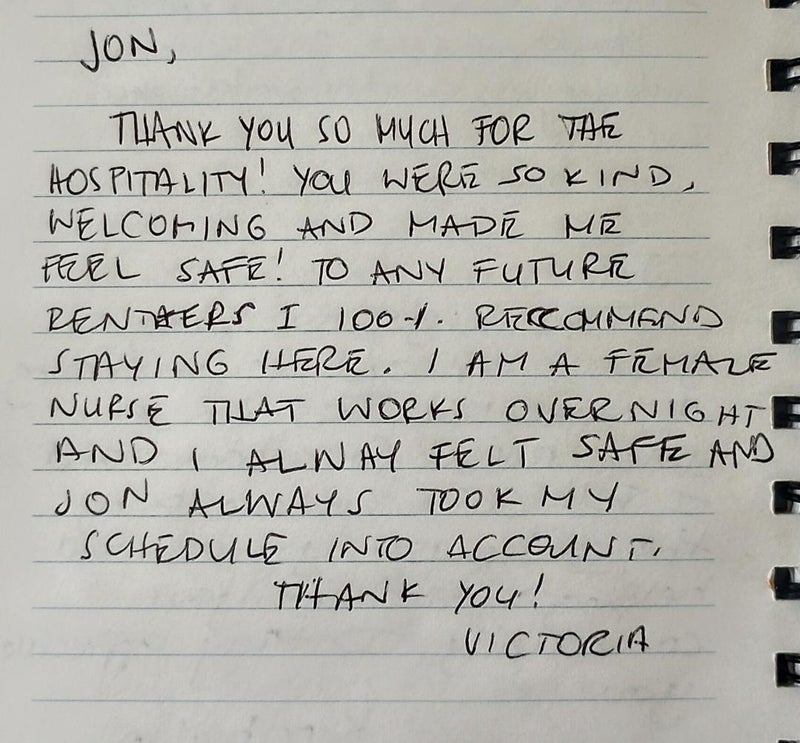 JON,
THANK YOU SO MUCH FOR THE
HOSPITALITY! YOU WERE SO KIND,
WELCOMING AND MADE ME
FEEL SAFE! TO ANY FUTURE
RENTERS I 100%. RECCOMMEND
STAYING HERE. I AM A FEMALE
NURSE THAT WORKS OVERNIGHT
AND I ALWAY FELT SAFE AND
JON ALWAYS TOOK MY
SCHEDULE INTO ACCOUNT.
THANK YOU!
VICTORIA